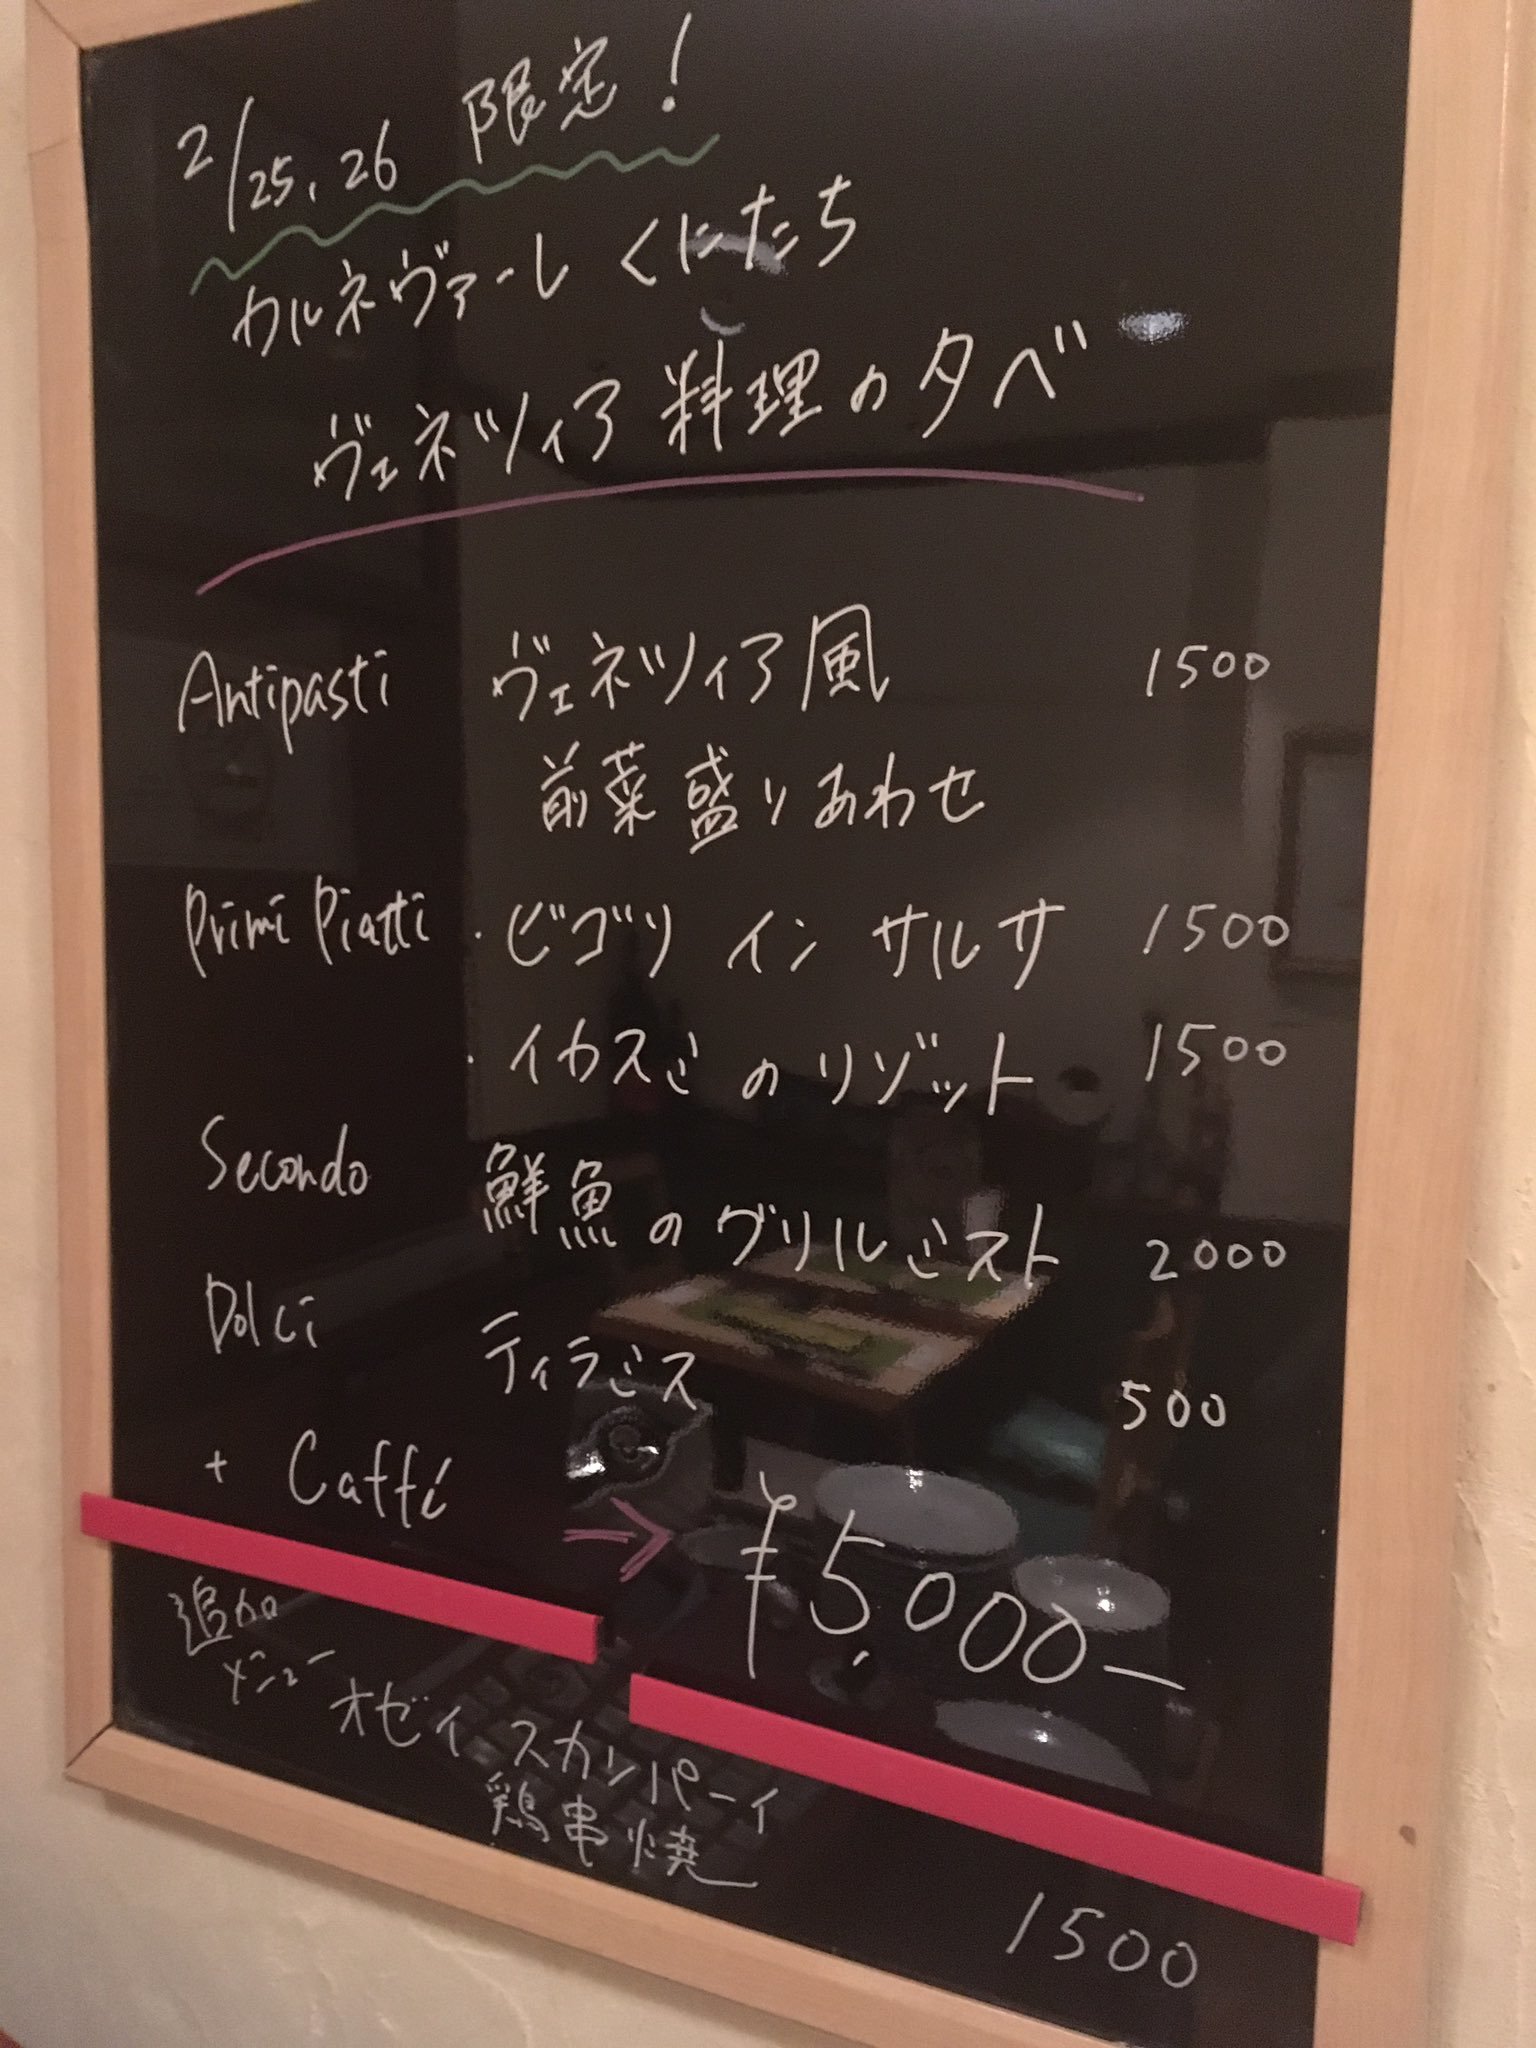 2/25, 26 限定!
カルネヴァーレ くにたち
ヴェネツィア料理の夕べ
Antipasti ヴェネツィア風 1500
前菜盛りあわせ
Primi Piatti ・ビゴリ イン サルサ 1500
・イカスミのリゾット 1500
Secondo 鮮魚のグリルミスト 2000
Dolci ティラミス 500
+ Caffé → ¥5,000-
追加
メニュー オゼイ スカンパーイ
鶏串焼 1500